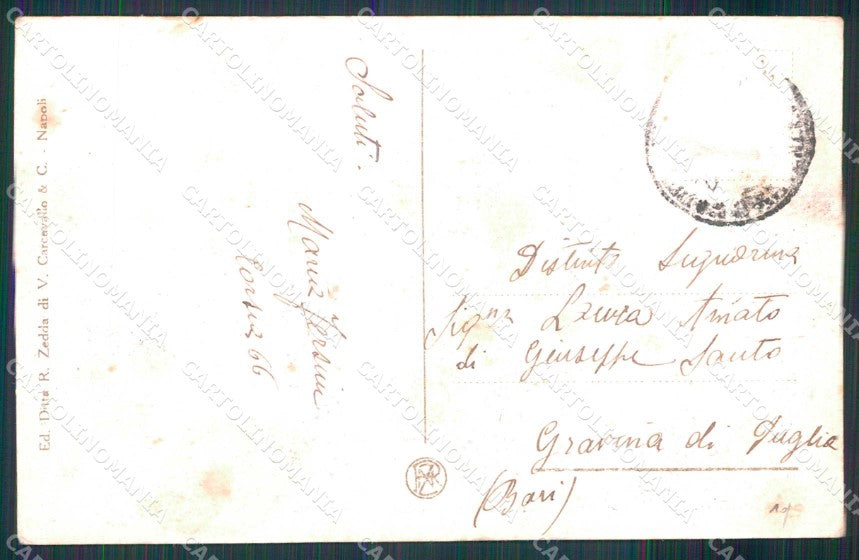 Ed. Ditta R. Zedda di V. Carcavallo & C. - Napoli
Saluti.
Maria
66
Distinta Signorina
Signa Laura Amato
di Giuseppe Santo
Gravina di Puglia
(Bari)
CARTOLINOMANIA